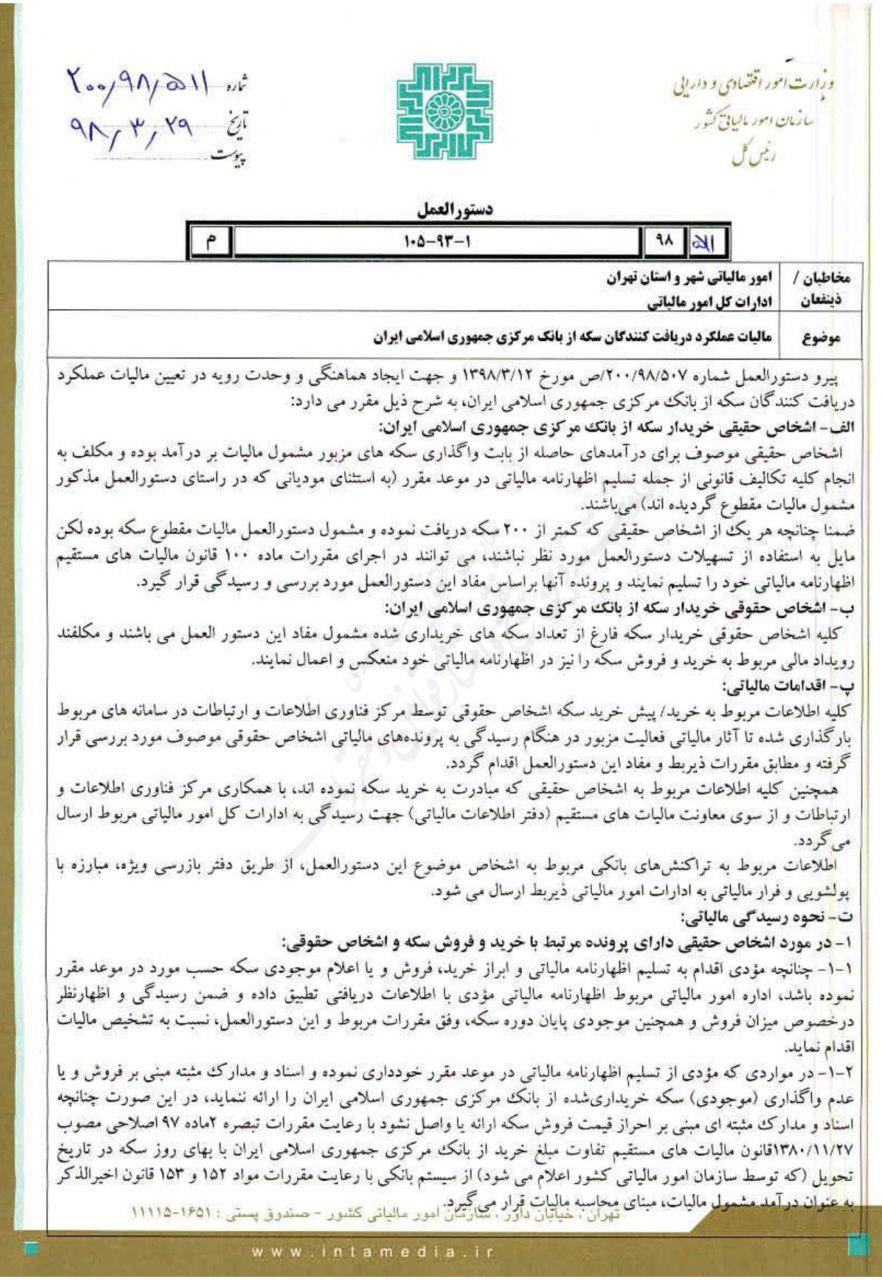 وزارت امور اقتصادی و دارایی
سازمان امور مالیاتی کشور
رئیس کل
شماره ۲۰۰/۹۸/۵۱۱
تاریخ ۹۸/۳/۲۹
پیوست
دستورالعمل
۵۱۱ ۹۸ ۱۰۵-۹۳-۱ م
مخاطبان / امور مالیاتی شهر و استان تهران
ذینفعان ادارات کل امور مالیاتی
موضوع مالیات عملکرد دریافت کنندگان سکه از بانک مرکزی جمهوری اسلامی ایران
پیرو دستورالعمل شماره ۲۰۰/۹۸/۵۰۷/ص مورخ ۱۳۹۸/۳/۱۲ و جهت ایجاد هماهنگی و وحدت رویه در تعیین مالیات عملکرد
دریافت کنندگان سکه از بانک مرکزی جمهوری اسلامی ایران، به شرح ذیل مقرر می دارد:
الف- اشخاص حقیقی خریدار سکه از بانک مرکزی جمهوری اسلامی ایران:
اشخاص حقیقی موصوف برای درآمدهای حاصله از بابت واگذاری سکه های مزبور مشمول مالیات بر درآمد بوده و مکلف به
انجام کلیه تکالیف قانونی از جمله تسلیم اظهارنامه مالیاتی در موعد مقرر (به استثنای مودیانی که در راستای دستورالعمل مذکور
مشمول مالیات مقطوع گردیده اند) می‌باشند.
ضمنا چنانچه هر یک از اشخاص حقیقی که کمتر از ۲۰۰ سکه دریافت نموده و مشمول دستورالعمل مالیات مقطوع سکه بوده لکن
مایل به استفاده از تسهیلات دستورالعمل مورد نظر نباشند، می توانند در اجرای مقررات ماده ۱۰۰ قانون مالیات های مستقیم
اظهارنامه مالیاتی خود را تسلیم نمایند و پرونده آنها براساس مفاد این دستورالعمل مورد بررسی و رسیدگی قرار گیرد.
ب- اشخاص حقوقی خریدار سکه از بانک مرکزی جمهوری اسلامی ایران:
کلیه اشخاص حقوقی خریدار سکه فارغ از تعداد سکه های خریداری شده مشمول مفاد این دستور العمل می باشند و مکلفند
رویداد مالی مربوط به خرید و فروش سکه را نیز در اظهارنامه مالیاتی خود منعکس و اعمال نمایند.
پ- اقدامات مالیاتی:
کلیه اطلاعات مربوط به خرید/ پیش خرید سکه اشخاص حقوقی توسط مرکز فناوری اطلاعات و ارتباطات در سامانه های مربوط
بارگذاری شده تا آثار مالیاتی فعالیت مزبور در هنگام رسیدگی به پرونده‌های مالیاتی اشخاص حقوقی موصوف مورد بررسی قرار
گرفته و مطابق مقررات ذیربط و مفاد این دستورالعمل اقدام گردد.
همچنین کلیه اطلاعات مربوط به اشخاص حقیقی که مبادرت به خرید سکه نموده اند، با همکاری مرکز فناوری اطلاعات و
ارتباطات و از سوی معاونت مالیات های مستقیم (دفتر اطلاعات مالیاتی) جهت رسیدگی به ادارات کل امور مالیاتی مربوط ارسال
می‌گردد.
اطلاعات مربوط به تراکنش‌های بانکی مربوط به اشخاص موضوع این دستورالعمل، از طریق دفتر بازرسی ویژه، مبارزه با
پولشویی و فرار مالیاتی به ادارات امور مالیاتی ذیربط ارسال می شود.
ت- نحوه رسیدگی مالیاتی:
۱- در مورد اشخاص حقیقی دارای پرونده مرتبط با خرید و فروش سکه و اشخاص حقوقی:
۱-۱- چنانچه مؤدی اقدام به تسلیم اظهارنامه مالیاتی و ابراز خرید، فروش و یا اعلام موجودی سکه حسب مورد در موعد مقرر
نموده باشد، اداره امور مالیاتی مربوط اظهارنامه مالیاتی مؤدی با اطلاعات دریافتی تطبیق داده و ضمن رسیدگی و اظهارنظر
درخصوص میزان فروش و همچنین موجودی پایان دوره سکه، وفق مقررات مربوط و این دستورالعمل، نسبت به تشخیص مالیات
اقدام نماید.
۱-۲- در مواردی که مؤدی از تسلیم اظهارنامه مالیاتی در موعد مقرر خودداری نموده و اسناد و مدارک مثبته مبنی بر فروش و یا
عدم واگذاری (موجودی) سکه خریداری‌شده از بانک مرکزی جمهوری اسلامی ایران را ارائه ننماید، در این صورت چنانچه
اسناد و مدارک مثبته ای مبنی بر احراز قیمت فروش سکه ارائه یا واصل نشود با رعایت مقررات تبصره ۲ماده ۹۷ اصلاحی مصوب
۱۳۸۰/۱۱/۲۷قانون مالیات های مستقیم تفاوت مبلغ خرید از بانک مرکزی جمهوری اسلامی ایران با بهای روز سکه در تاریخ
تحویل (که توسط سازمان امور مالیاتی کشور اعلام می شود) از سیستم بانکی با رعایت مقررات مواد ۱۵۲ و ۱۵۳ قانون اخیرالذکر
به عنوان درآمد مشمول مالیات، مبنای محاسبه مالیات قرار می‌گیرد.
تهران ، خیابان داور ، سازمان امور مالیاتی کشور - صندوق پستی : ۱۶۵۱-۱۱۱۱۵
www.intamedia.ir